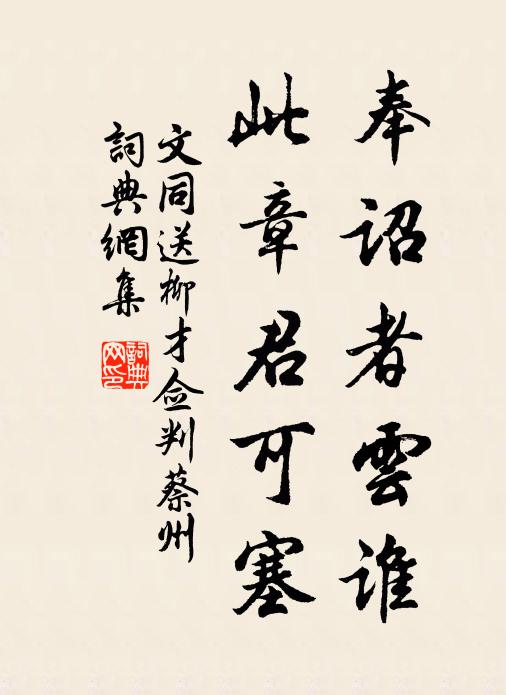 奉詔者雲誰
此章君可塞
文同送柳才僉判蔡州
詞典網集
詞典
网印